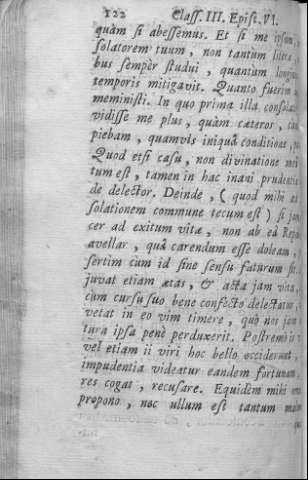 122 Class. III. Epist. VI.
quàm si abessemus. Et si me ipsum
solatorem tuum, non tantùm litera
bus sempèr studui, quantum longin
temporis mitigavit. Quanto fuerim
meministi. In quo prima illa consola
vidisse me plus, quàm cæteros, cum
piebam, quamvìs iniquâ conditione, pa
Quod etsi casu, non divinatione mei
tum est, tamen in hac inani prudentia
de delector. Deinde, (quod mihi ad
solationem commune tecum est) si jam
cer ad exitum vitæ, non ab eâ Repu
avellar, quâ carendum esse doleam,
sertim cùm id sine sensu futurum sit.
juvat etiam ætas, & acta jam vita,
cùm cursu suo bene confecto delectatur,
vetat in eo vim timere, quò nos jam
tura ipsa penè perduxerit. Postremò is
vel etiam ii viri hoc bello occiderunt,
impudentia videatur eandem fortunam,
res cogat, recusare. Equidèm mihi om
propono, nec ullum est tantum malum